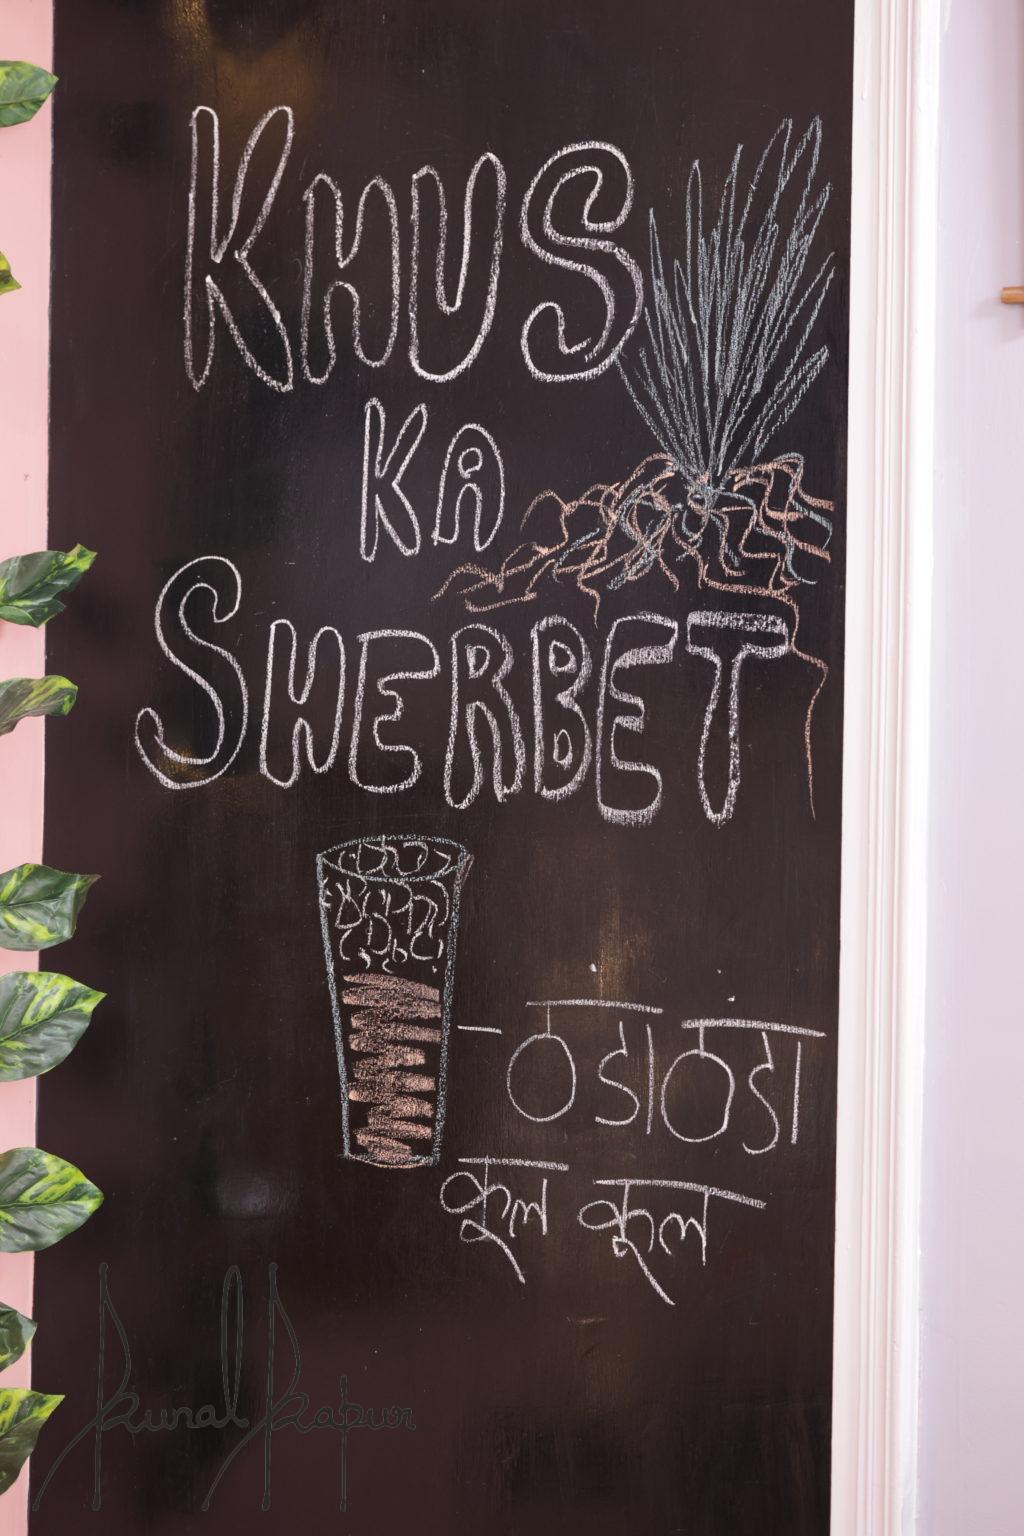 KHUS
KA
SHERBET
- ठंडा ठंडा
कूल कूल
Kunal Kapur